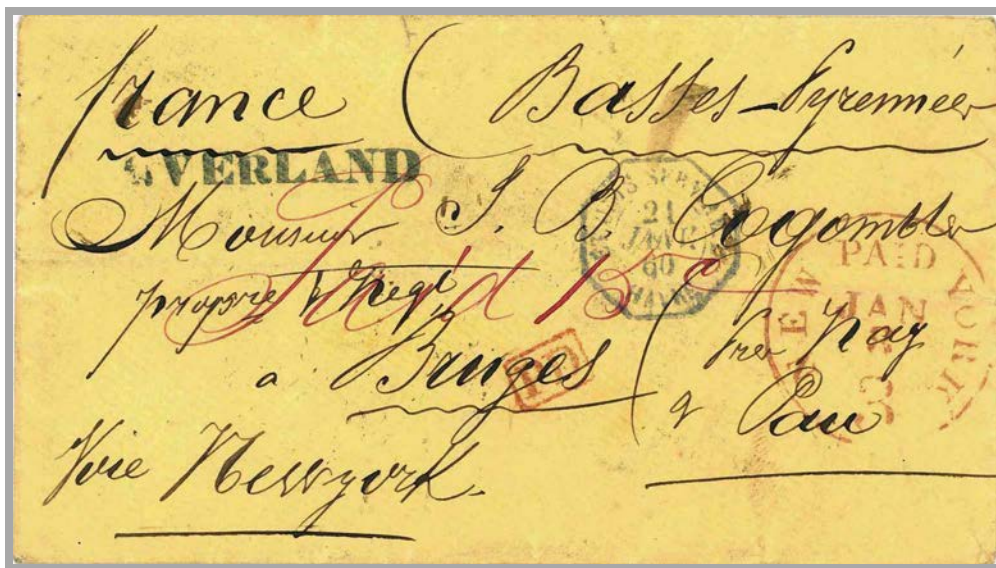 france ( Basses-Pyrennées
OVERLAND
Monsieur J. B.
Paid 15
21
JANV.
60
HAVRE
NEW YORK
PAID
JAN
3
propre
a Bruges ( pres Nay
PD
a Pau
Voie Newyork.